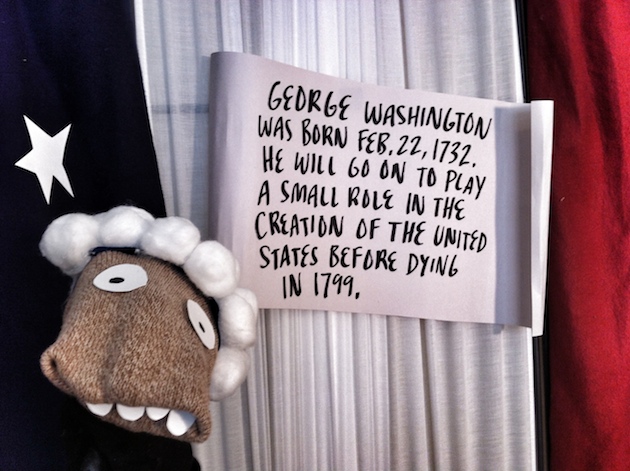 GEORGE WASHINGTON
WAS BORN FEB. 22, 1732.
HE WILL GO ON TO PLAY
A SMALL ROLE IN THE
CREATION OF THE UNITED
STATES BEFORE DYING
IN 1799.